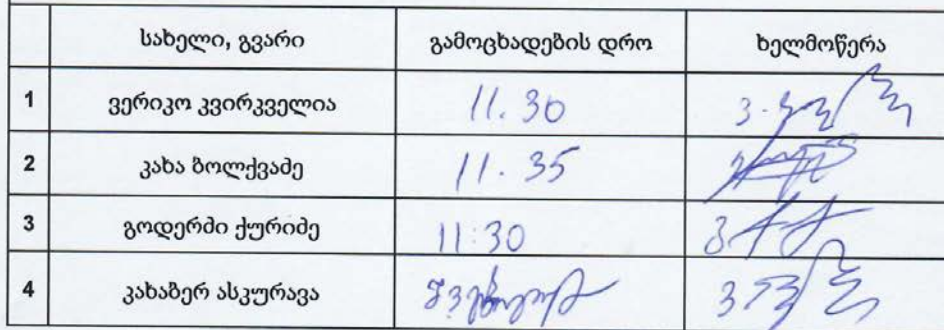 სახელი, გვარი გამოცხადების დრო ხელმოწერა
1 ვერიკო კვირკველია 11.30
2 კახა ბოლქვაძე 11.35
3 გოდერძი ქურიძე 11:30
4 კახაბერ ასკურავა